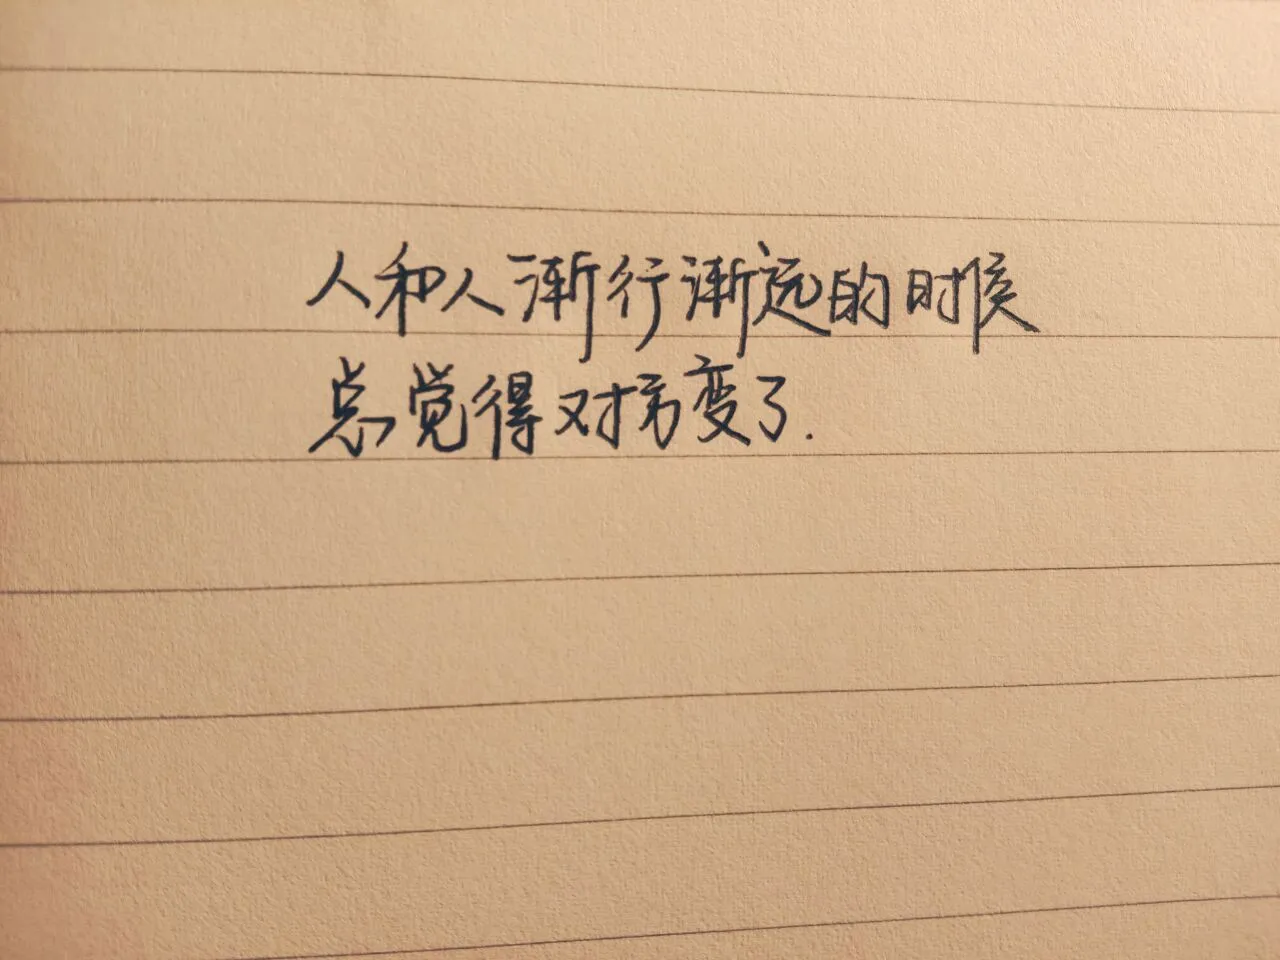 人和人渐行渐远的时候
总觉得对方变了.